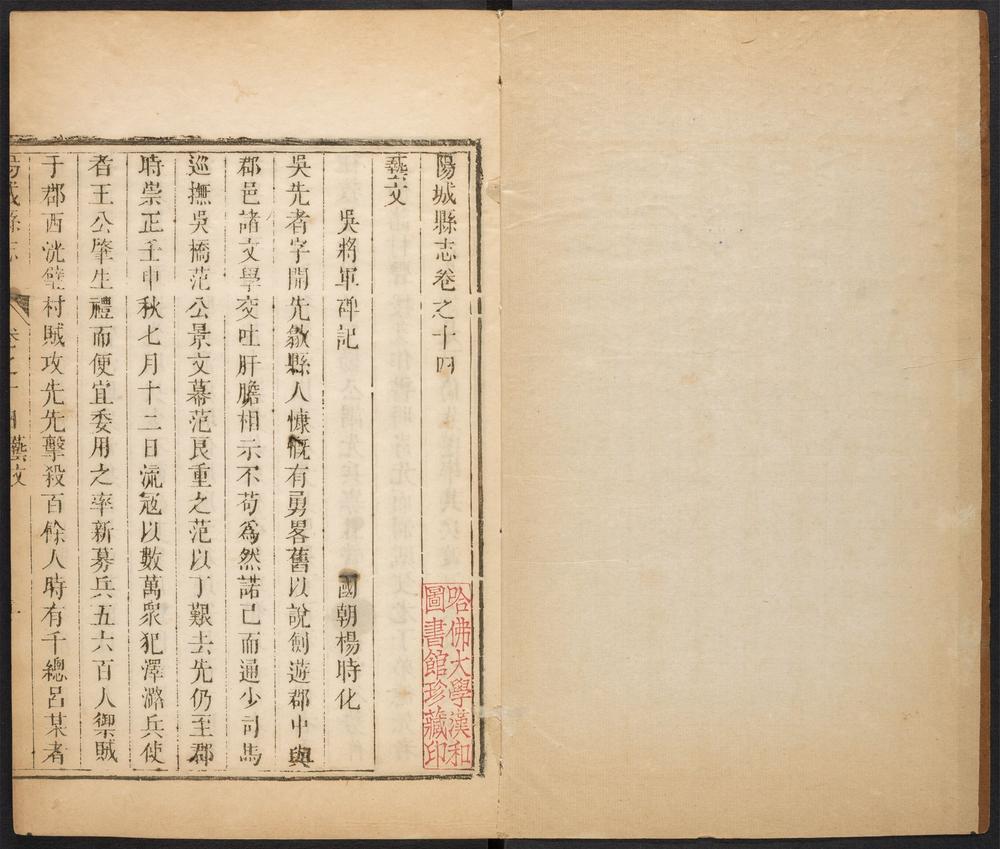 陽城縣志卷之十四
藝文
吳將軍碑記 國朝楊時化
吳先者字開先歙縣人慷慨有勇畧舊以說劍遊郡中與
郡邑諸文學交吐肝膽相示不苟爲然諾己而通少司馬
巡撫吳橋范公景文幕范艮重之范以丁艱去先仍至郡
時崇正壬申秋七月十二日流冦以數萬衆犯澤潞兵使
者王公肇生禮而便宜委用之率新募兵五六百人禦賊
于郡西㳘壁村賊攻先先擊殺百餘人時有千總呂某者
陽城縣志 卷之十四藝文 一
哈佛大學漢和
圖書館珍藏印